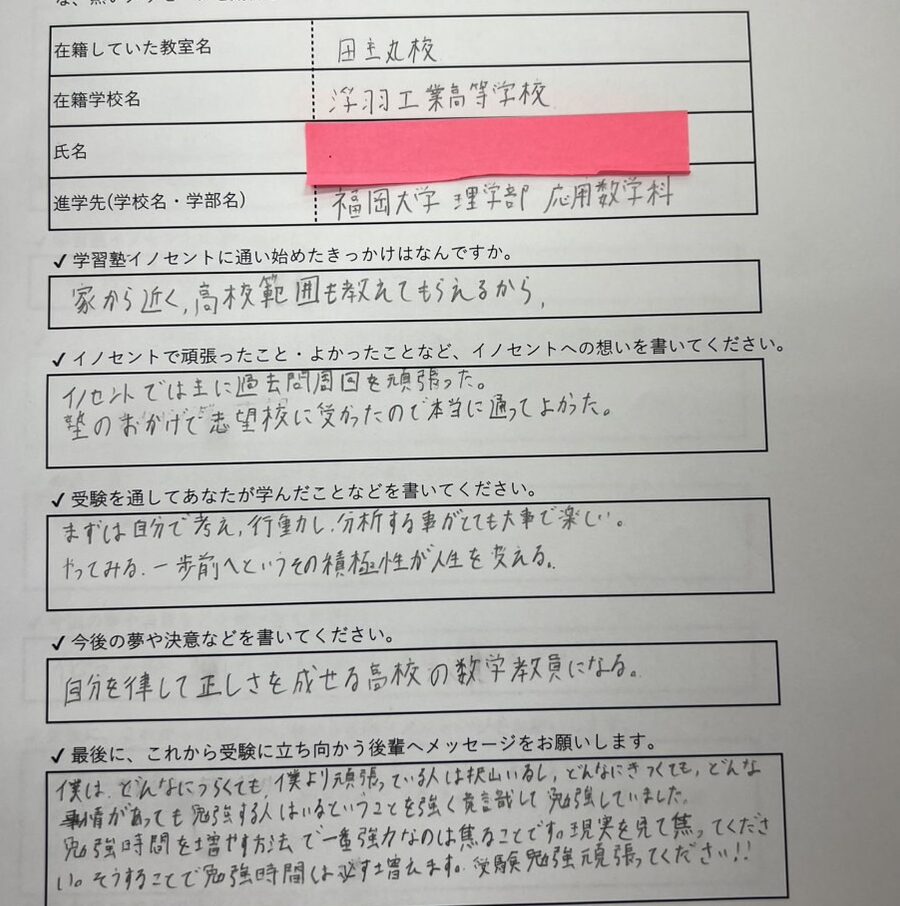 在籍していた教室名 田主丸校
在籍学校名 浮羽工業高等学校
氏名
進学先(学校名・学部名) 福岡大学 理学部 応用数学科
✓学習塾イノセントに通い始めたきっかけはなんですか。
家から近く、高校範囲も教えてもらえるから、
✓イノセントで頑張ったこと・よかったことなど、イノセントへの想いを書いてください。
イノセントでは主に過去問周回を頑張った。
塾のおかげで志望校に受かったので本当に通ってよかった。
✓受験を通してあなたが学んだことなどを書いてください。
まずは自分で考え、行動し、分析する事がとても大事で楽しい。
やってみる、一歩前へというその積極性が人生を変える。
✓今後の夢や決意などを書いてください。
自分を律して正しさを成せる高校の数学教員になる。
✓最後に、これから受験に立ち向かう後輩へメッセージをお願いします。
僕は、どんなにつらくても僕より頑張っている人は沢山いるし、どんなにきつくても、どんな
事情があっても勉強する人はいるということを強く意識して勉強していました。
勉強時間を増やす方法で一番強力なのは焦ることです。現実を見て焦ってくださ
い。そうすることで勉強時間は必ず増えます。受験勉強頑張ってください!!